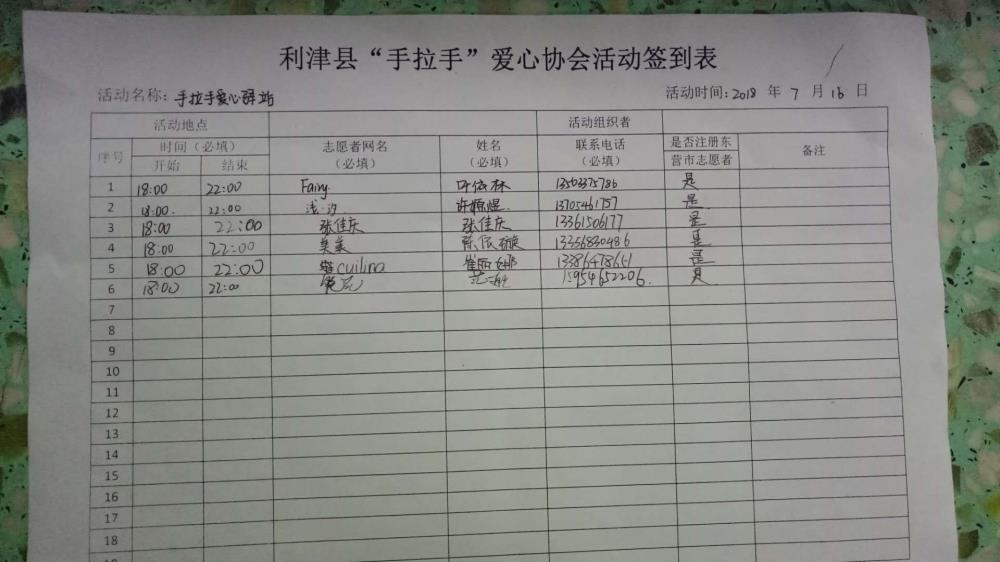 利津县“手拉手”爱心协会活动签到表
活动名称：手拉手爱心驿站 活动时间：2018 年 7 月 16 日
活动地点 活动组织者
序号 时间（必填） 志愿者网名（必填） 姓名（必填） 联系电话（必填） 是否注册东营市志愿者 备注
开始 结束
1 18:00 22:00 Fairy 叶依林 13503375786 是
2 18:00. 22:00 浅汐 许婷煜 13705461757 是
3 18:00 22:00 张佳庆 张佳庆 13361506177 是
4 18:00 22:00 陈依璇 13356830486 是
5 18:00 22:00 cuilina 崔丽娜 13386478651 是
6 18:00 22:00 15954652206. 是
7
8
9
10
11
12
13
14
15
16
17
18